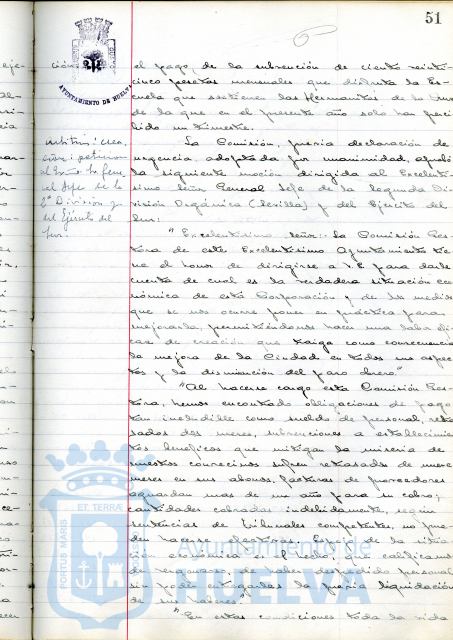 51
el pago de la subvención de ciento veinti-
cinco pesetas mensuales que disfruta la Es-
cuela que sostienen las Hermanitas de la Cruz
de la que en el presente año solo han perci-
bido un trimestre.
La Comisión, previa declaración de
urgencia, adoptada por unanimidad, aprobó
la siguiente moción dirigida al Excelentí-
simo Señor General Jefe de la Segunda Di-
visión Orgánica (Sevilla) y del Ejército del
Sur:
"Excelentísimo Señor: La Comisión Ges-
tora de este Excelentísimo Ayuntamiento tie-
ne el honor de dirigirse a V.E. para darle
cuenta de cual es la verdadera situación eco-
nómica de esta Corporación y de las medidas
que se nos ocurre poner en práctica para
mejorarla, permitiéndonos hacer una labor efi-
caz de creación que traiga como consecuencia
la mejora de la Ciudad en todos sus aspec-
tos y la disminución del paro obrero"
"Al hacerse cargo esta Comisión Ges-
tora, hemos encontrado obligaciones de pago
tan ineludible como sueldo de personal, retra-
sados dos meses, subvenciones a establecimien-
tos benéficos que mitigan la miseria de
nuestros convecinos sufren retrasados de nueve
meses en sus abonos, facturas de proveedores
aguardan mas de un año para su cobro;
cantidades cobradas indebidamente, según
sentencias de Tribunales competentes, no pue-
den hacerse efectivas
sin poder entregarles la previa liquidación
de sus haberes."
"En estas condiciones toda la vida
AYUNTAMIENTO DE HUELVA
2ª División y
del Ejército del
Sur.
PORTUS MARIS ET TERRÆ
Ayuntamiento de
HUELVA